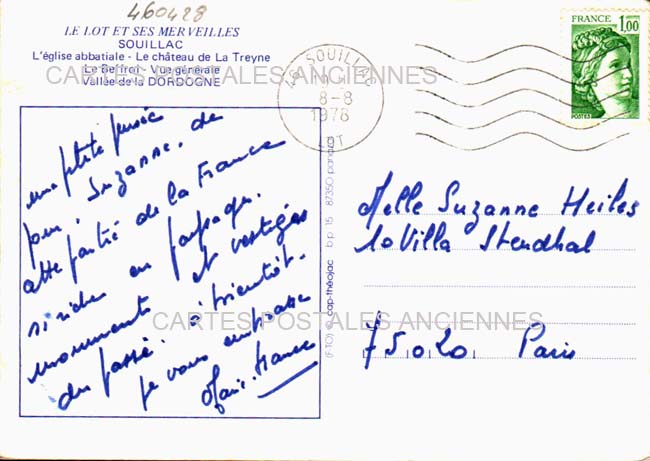 460428
LE LOT ET SES MERVEILLES
SOUILLAC
L'église abbatiale - Le château de La Treyne
Le Beffroi - Vue générale
Vallée de la DORDOGNE
CARTES POSTALES ANCIENNES
46 SOUILLAC
8-8
1978
LOT
FRANCE
1,00
POSTES
une ptite pensée
pour Suzanne. de
cette partie de la France
si riche en paysages.
monuments et vestiges
du passé. à bientôt.
je vous embrasse
Marie-France
(F-TO) © cap-théojac b.p. 15 87350 panazol
Melle Suzanne Heiles
10 Villa Stendhal
75020 Paris
CARTES POSTALES ANCIENNES